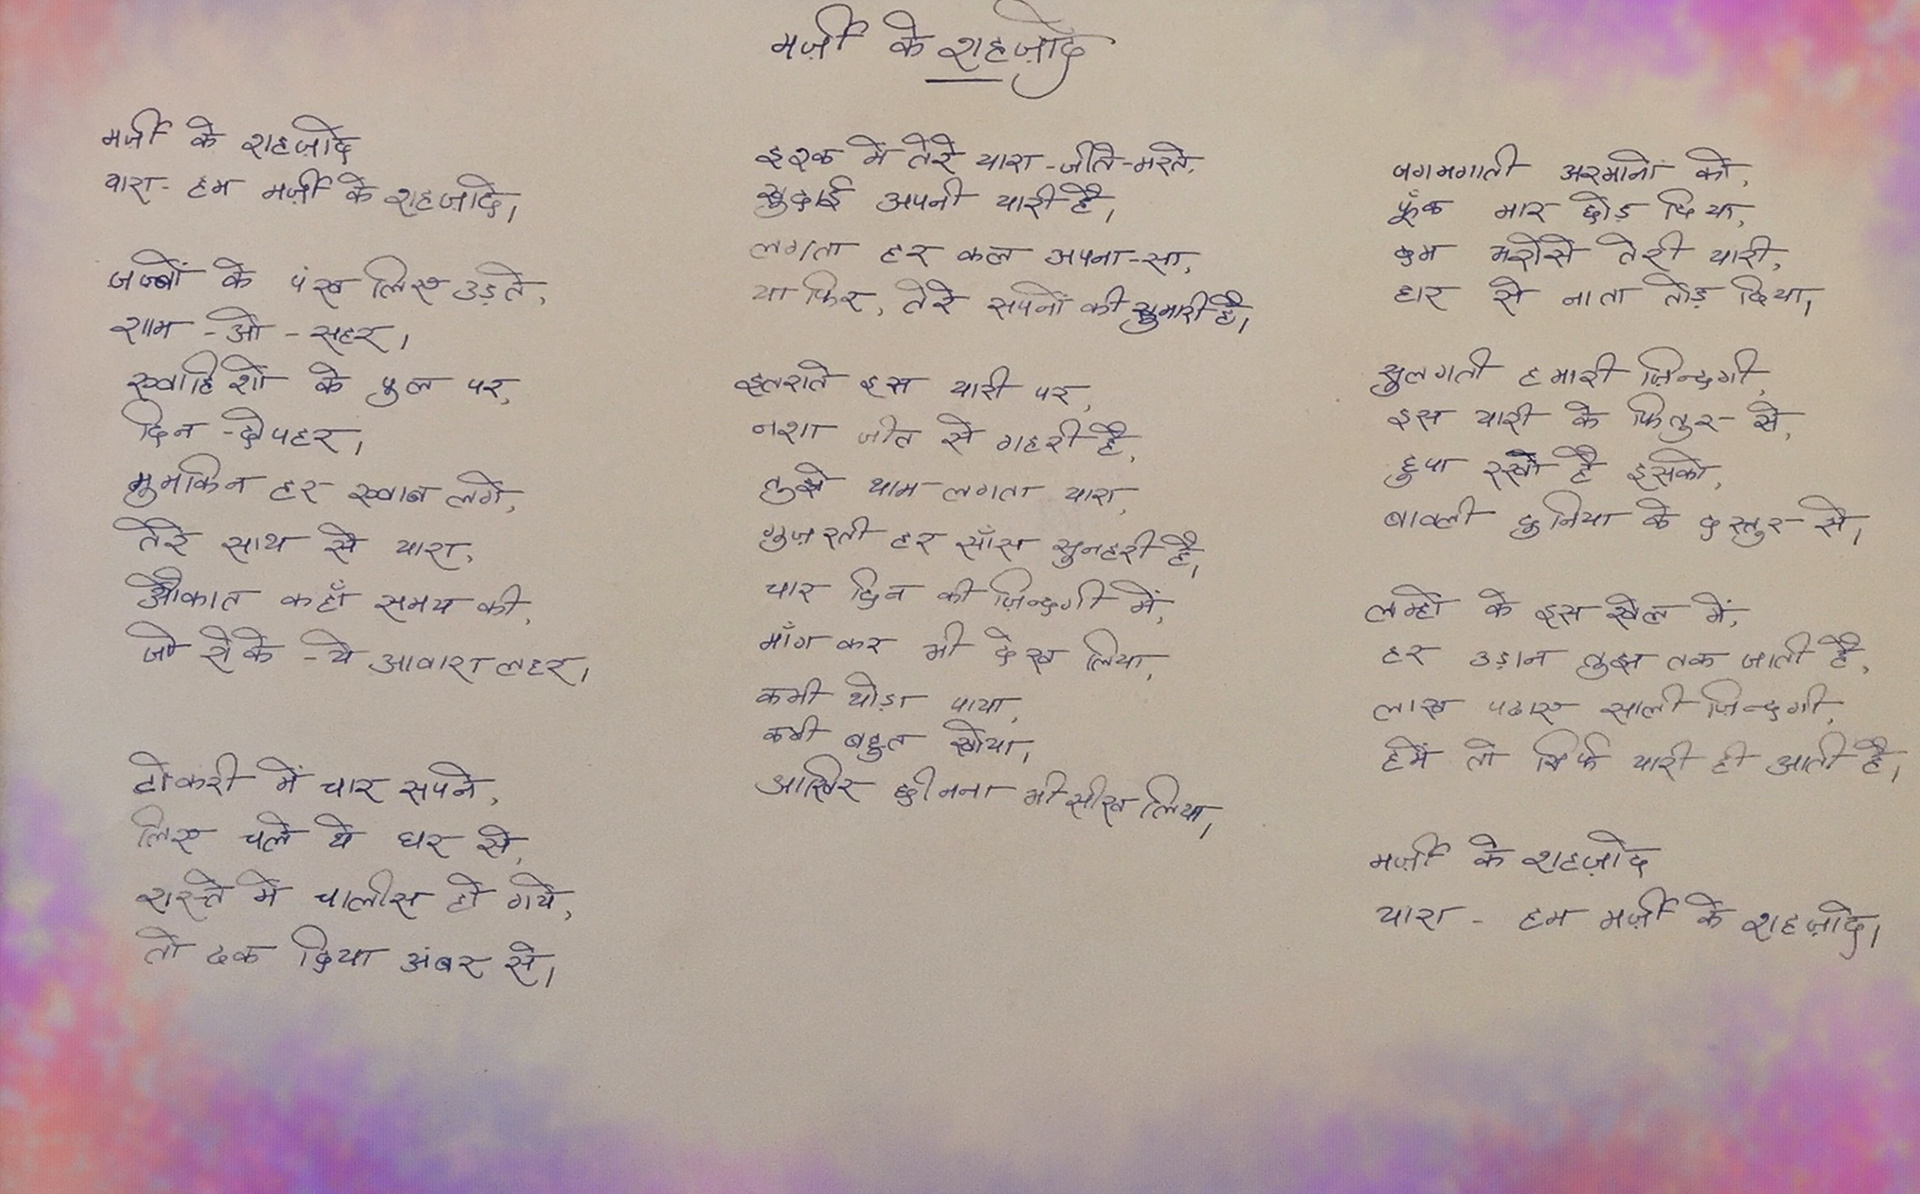 मर्ज़ी के शहज़ादे
मर्ज़ी के शहज़ादे
यारा - हम मर्ज़ी के शहज़ादे।
जज़्बों के पंख लिए उड़ते,
शाम - ओ - सहर।
ख्वाहिशों के पुल पर,
दिन - दोपहर।
मुमकिन हर ख्वाब लगे,
तेरे साथ से यारा,
औकात कहाँ समय की,
जो रोके - ये आवारा लहर।
टोकरी में चार सपने,
लिए चले थे घर से,
रास्ते में चालीस हो गये,
तो ढक दिया अंबर से।
इश्क में तेरे यारा - जीते - मरते,
खुदाई अपनी यारी है,
लगता हर कल अपना - सा,
या फिर, तेरे सपनों की खुमारी है।
इतराते इस यारी पर,
नशा जीत से गहरी है,
तुझे थाम लगता यारा,
गुज़रती हर साँस सुनहरी है।
चार दिन की ज़िन्दगी में,
माँग कर भी देख लिया,
कभी थोड़ा पाया,
कभी बहुत खोया,
आखिर छीनना भी सीख लिया।
जगमगाती अरमानों को,
फूँक मार छोड़ दिया,
दम भरोसे तेरी यारी,
हार से नाता तोड़ दिया।
सुलगती हमारी ज़िन्दगी,
इस यारी के फितुर - से,
छुपा रखो है इसको,
बावली दुनिया के दस्तुर - से।
लम्हों के इस खेल में,
हर उड़ान तुझ तक जाती है,
लाख पढाए साली ज़िन्दगी,
हमें तो सिर्फ यारी ही आती है।
मर्ज़ी के शहज़ादे
यारा - हम मर्ज़ी के शहज़ादे।